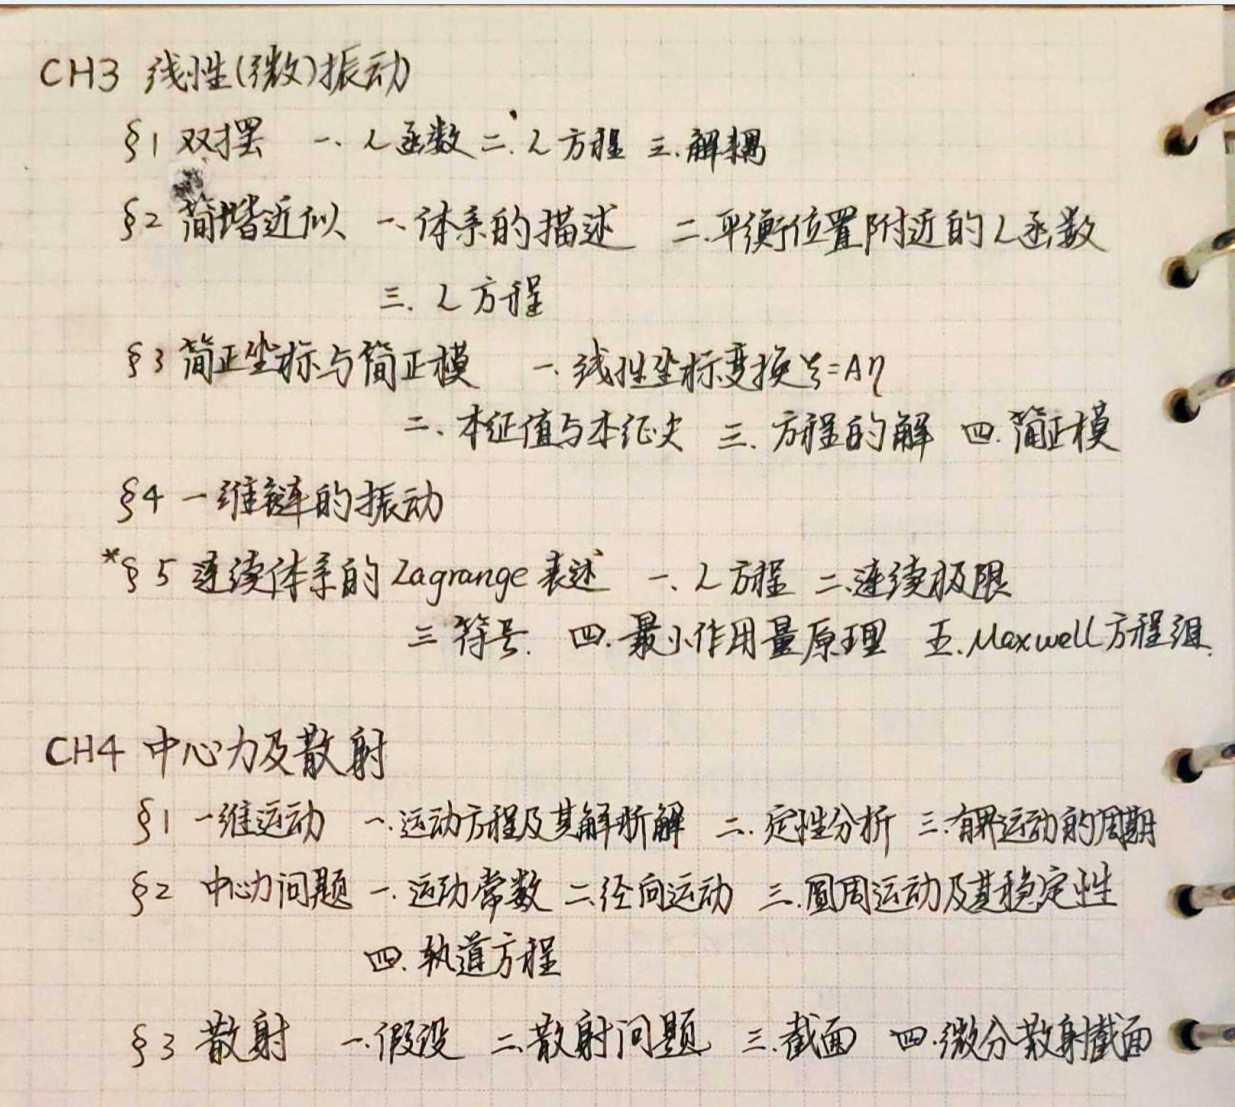 CH3 线性(微)振动
§1 双摆 一、L函数 二、L方程 三.解耦
§2 简谐近似 一、体系的描述 二.平衡位置附近的L函数
三、L方程
§3 简正坐标与简正模 一、线性坐标变换ξ=Aη
二、本征值与本征矢 三、方程的解 四.简正模
§4 一维链的振动
*§5 连续体系的Lagrange表述 一、L方程 二、连续极限
三符号. 四.最小作用量原理 五.Maxwell方程组.
CH4 中心力及散射
§1 一维运动 一.运动方程及其解析解 二.定性分析 三.有界运动的周期
§2 中心力问题 一、运动常数 二、径向运动 三.圆周运动及其稳定性
四.轨道方程
§3 散射 一.假设 二、散射问题 三.截面 四.微分散射截面